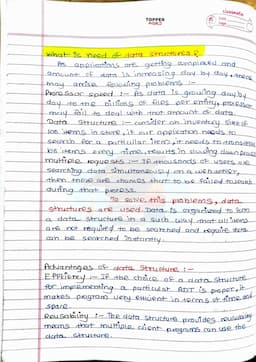 TOPPER
What is need of data structures ?
As applications are getting complexed and
amount of data is increasing day by day, there
may arrise following problems :-
Processor speed :- As data is growing day by
day to the billions of files per entity, processor
may fail to deal with that amount of data.
Data structure - consider an inventory size of
100 items in store, if our application needs to
search for a particular item, it needs to
100 items every time, results in slowing down process
multiple requests :- If thousands of users are
searching data simultaneously on a web server,
then there are chances that to be failed
during that process.
To solve this problems, data
structures are used. Data is organized to form
a data structure in a such way that all items
are not required to be searched and require data
can be searched instantly.
Advantages of data structure :-
Efficiency :- If the choice of a data structure
for implementing a particular ADT is proper, it
makes program very efficient in terms of time and
space.
Reusability :- The data structure provides reusability
means that multiple client programs can use the
data structure.